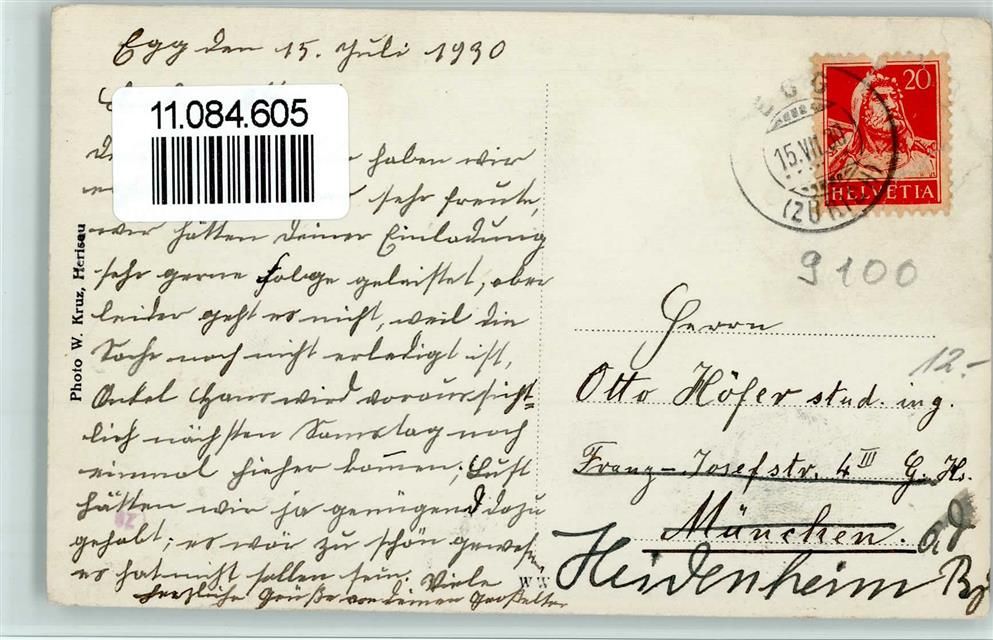 Egg den 15. Juli 1930
11.084.605
haben wir
sehr freute,
wir hätten Deiner Einladung
sehr gerne Folge geleistet, aber
leider geht es nicht, weil die
Sache noch nicht erledigt ist,
Onkel Hans wird voraussicht=
lich nächsten Samstag noch
einmal hieher kommen; Lust
hätten wir ja genügend dazu
gehabt; es wär zu schön gewesen,
es hat nicht sollen sein. Viele
herzliche Grüße von Deinen Großeltern
Photo W. Kruz, Herisau
EGG
15.VII.30
(ZÜRICH)
20
HELVETIA
9100
12.-
Herrn
Otto Höfer stud. ing.
Franz-Josefstr. 4 III G. Hs.
München.
Heidenheim